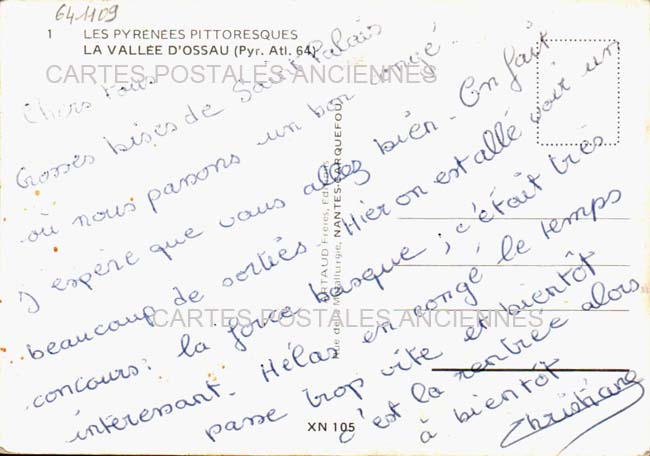 64-1109
1 LES PYRÉNÉES PITTORESQUES
LA VALLÉE D'OSSAU (Pyr. Atl. 64)
CARTES POSTALES ANCIENNES
Chers tous
Grosses bises de Saint Palais
où nous passons un bon congé.
J'espère que vous allez bien. On fait
beaucoup de sorties. Hier on est allé voir un
concours: la force basque, c'était très
intéressant. Hélas en congé le temps
passe trop vite et bientôt
c'est la rentrée alors
à bientôt
Christiane
CARTES POSTALES ANCIENNES
ARTAUD Frères, Editeurs
Rue de la Métallurgie, NANTES-CARQUEFOU
XN 105